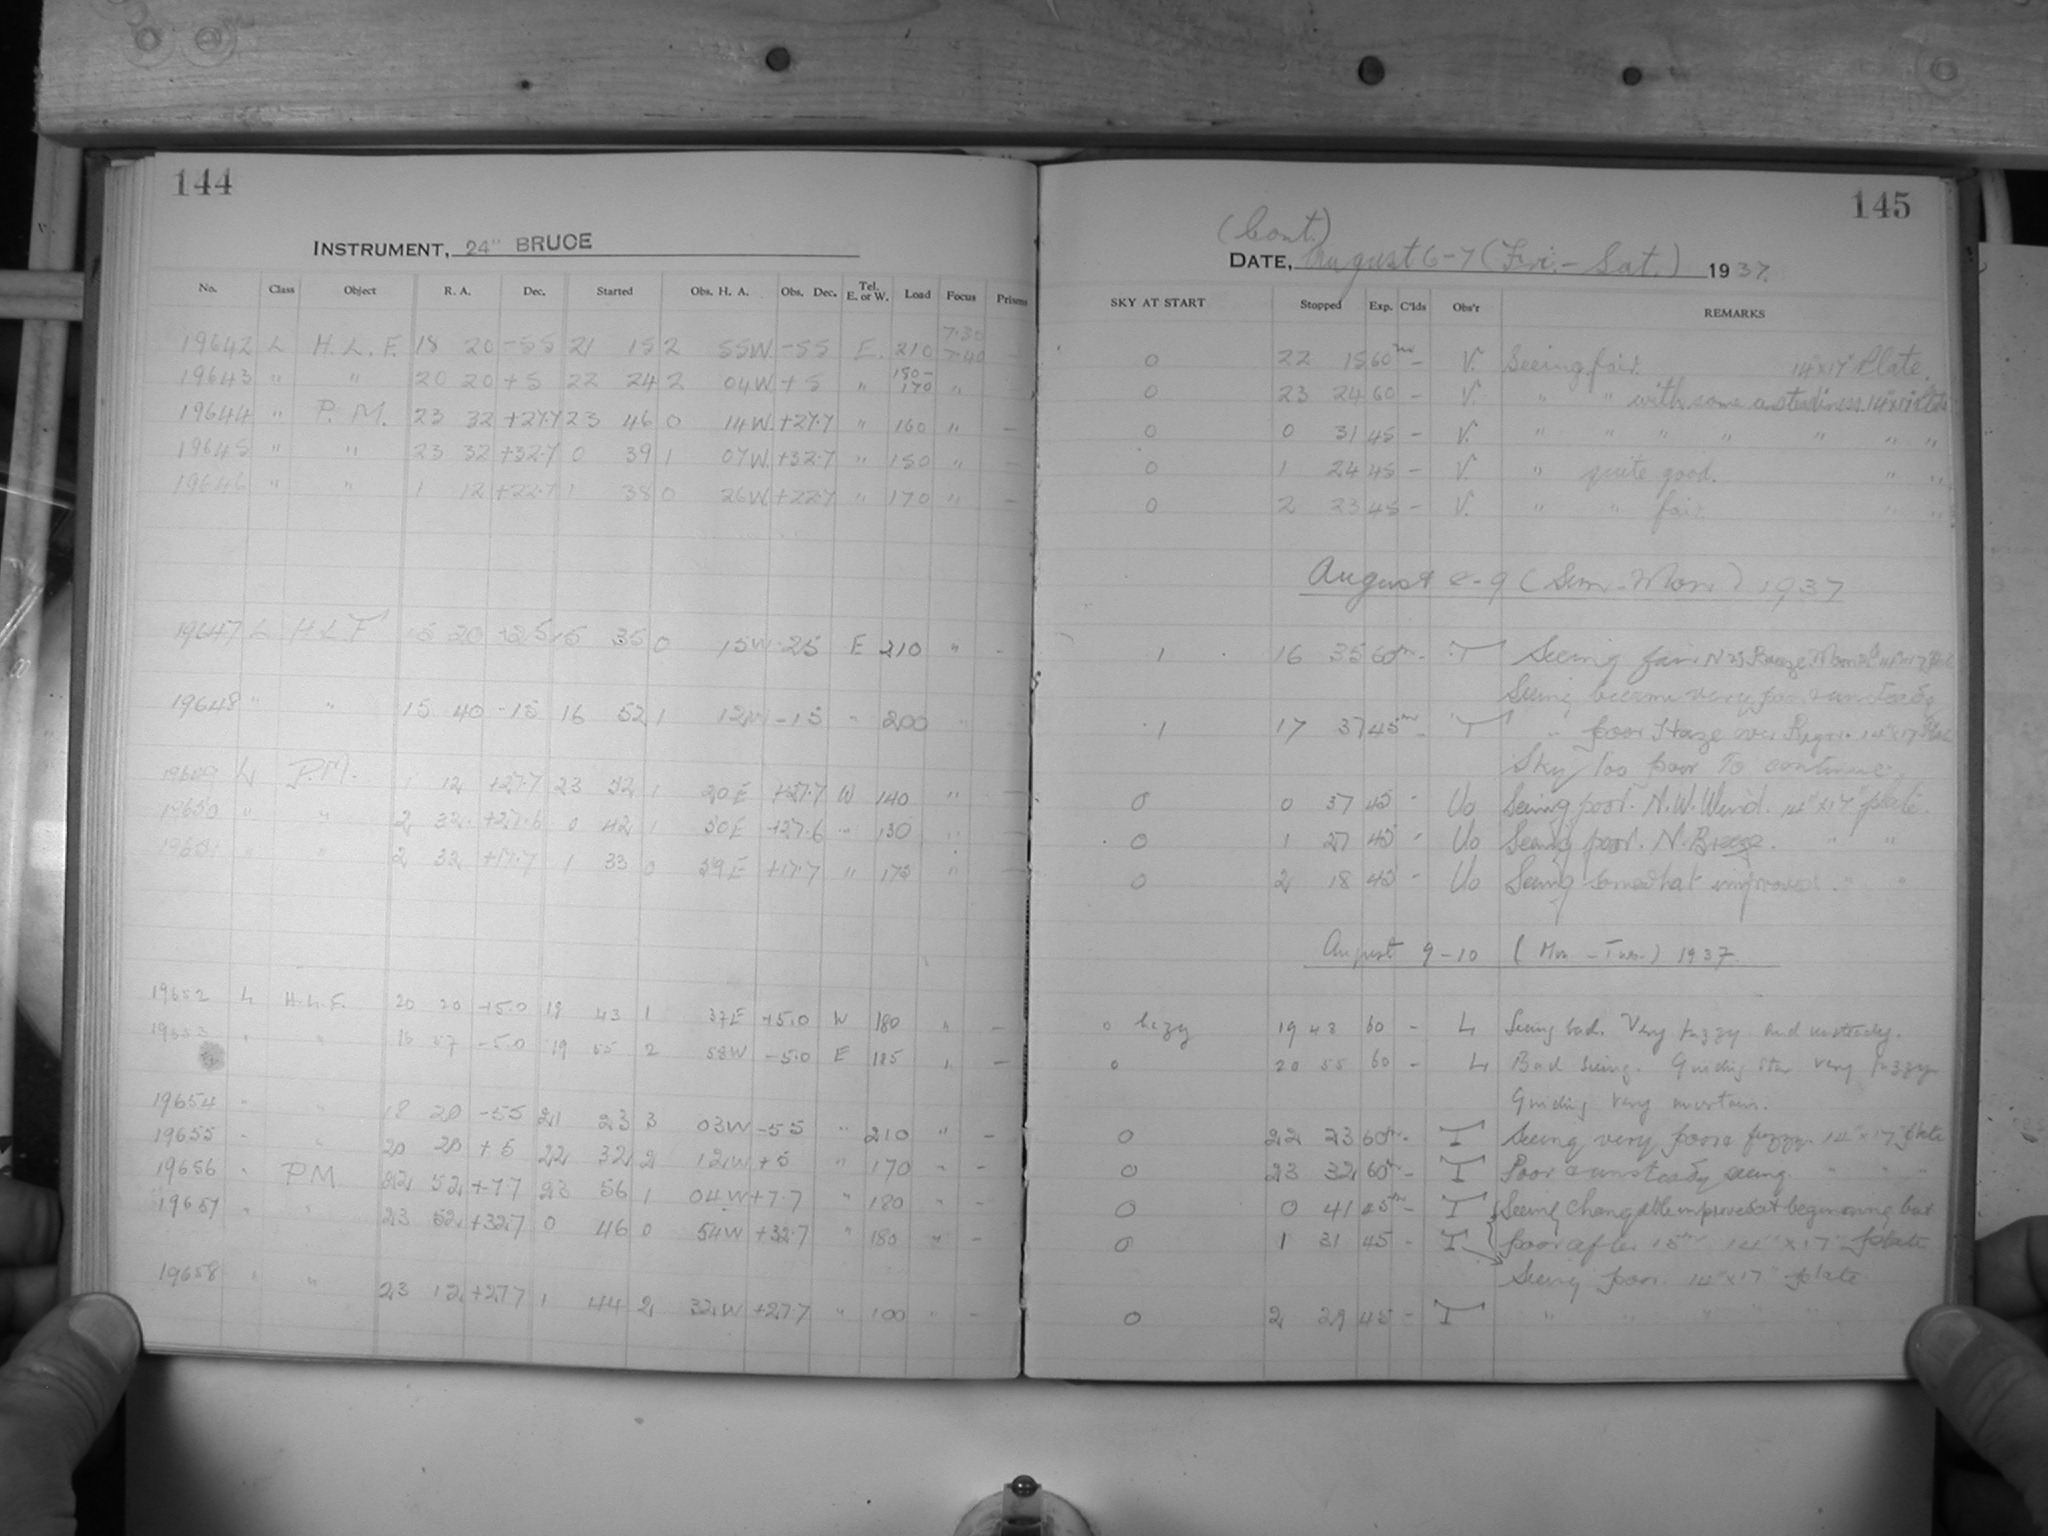 144
INSTRUMENT, 24" BRUCE
No. Class Object R. A. Dec. Started Obs. H. A. Obs. Dec. Tel. E. or W. Load Focus Prisms
19642 L H.L.F. 18 20 -55 21 15 2 55W. -55 E. 210 7.30 7.40 -
19643 " " 20 20 +5 22 24 2 04W +5 " 150-170 "
19644 " P.M. 23 32 +27.7 23 46 0 14W. +27.7 " 160 " -
19645 " " 23 32 +32.7 0 39 1 07W. +32.7 " 150 " -
19646 " " 1 12 +22.7 1 38 0 26W +22.7 " 170 " -
19647 L H.L.F 15 35 0 15W -25 E 210 " -
19648 " " 15 40 -15 16 52 1 12W -15 " 200 "
19649 L P.M. 1 12 +27.7 23 52 1 20E +27.7 W 140 "
19650 " " 2 32 +27.6 0 42 1 50E +27.6 " 130 "
19651 " " 2 32 +17.7 1 33 0 59E +17.7 " 175 " -
19652 L H.L.F. 20 20 +5.0 18 43 1 37E +5.0 W 180 " -
19653 " " 16 57 -5.0 19 55 2 58W -5.0 E 185 " -
19654 " " 18 20 -55 21 23 3 03W -55 " 210 " -
19655 " " 20 20 +5 22 32 2 12W +5 " 170 " -
19656 " P.M 52 +7.7 23 56 1 04W +7.7 " 180 " -
19657 " " 23 52 +32.7 0 46 0 54W +32.7 " 180 " -
19658 " " 23 12 +27.7 1 44 2 32W +27.7 " 100 " -
145
(Cont.)
DATE, August 6-7 (Fri.-Sat.) 1937.
SKY AT START Stopped Exp. C'lds Obs'r REMARKS
0 22 15 60m - V. Seeing fair. 14"x17" Plate.
0 23 24 60 - V. " " with some 14"x17" Plate
0 0 31 45 - V. " " " " " " "
0 1 24 45 - V. " quite good. " "
0 2 23 45 - V. " " fair. " "
August 8-9 (Sun-Mon) 1937
1 16 35 60m - T Seeing fair
Seeing become very poor & unsteady
1 17 37 45m - T " poor Haze over Region. 14"x17" Plate
Sky too poor to continue.
0 0 37 45 - Uo Seeing poor. N.W. Wind. 14"x17" plate.
0 1 27 45 - Uo Seeing poor. N. Breeze. " "
0 2 18 45 - Uo Seeing somewhat improved. " "
August 9-10 (Mon-Tues.) 1937.
0 hazy 19 43 60 - L Seeing bad. Very fuzzy and unsteady.
0 20 55 60 - L Bad seeing. Guiding star very fuzzy
Guiding very uncertain.
0 22 23 60m - T Seeing very poor & fuzzy. 14"x17" plate
0 23 32 60m - T Poor & unsteady seeing. " " "
0 0 41 45m - T Seeing changeable improved at beginning but
0 1 31 45 - T poor after 15m 14"x17" plate
Seeing poor. 14"x17" plate
0 2 29 45 - T " " " " "